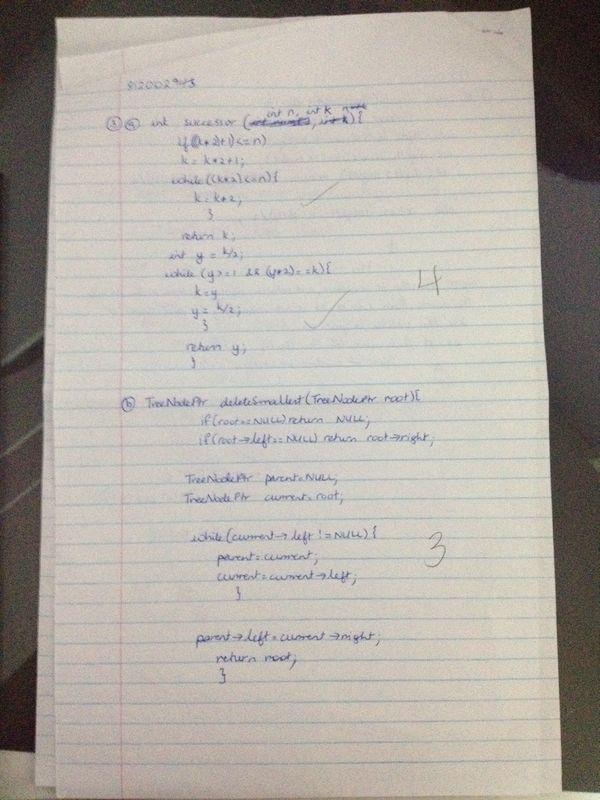 812002943
int n, int k
③ ⓐ int successor (int k){
if((k*2)+1)<=n)
k = k*2+1;
while((k*2)<=n){
k = k*2;
}
return k;
int y = k/2;
while (y>=1 && (y*2)==k){
k=y
y = k/2;
}
return y;
}
4
ⓑ TreeNodePtr deleteSmallest(TreeNodePtr root){
if(root==NULL)return NULL;
if(root->left==NULL) return root->right;
TreeNodePtr parent=NULL;
TreeNodePtr current=root;
while(current->left !=NULL){
parent=current;
current=current->left;
}
3
parent->left=current->right;
return root;
}